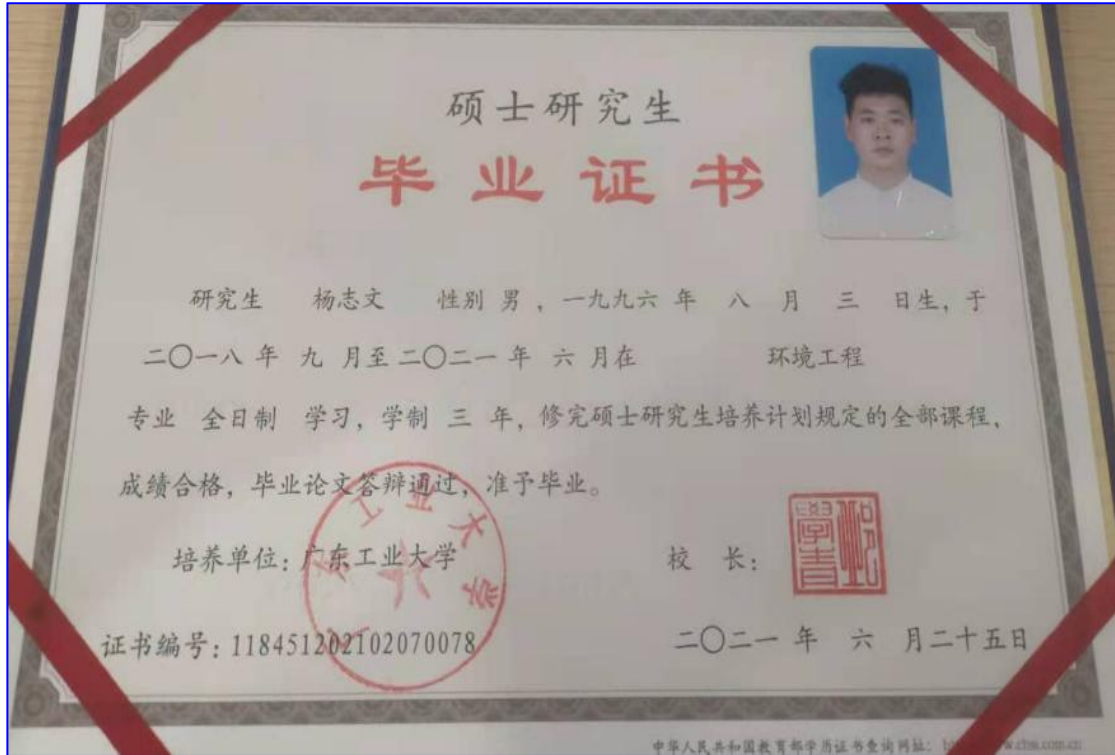 硕士研究生
毕业证书
研究生 杨志文 性别 男，一九九六 年 八 月 三 日生，于
二〇一八 年 九 月至 二〇二一 年 六 月在 环境工程
专业 全日制 学习，学制 三 年，修完硕士研究生培养计划规定的全部课程，
成绩合格，毕业论文答辩通过，准予毕业。
培养单位：广东工业大学 校 长：
广东工业大学
证书编号：118451202102070078 二〇二一 年 六 月二十五日
中华人民共和国教育部学历证书查询网址：